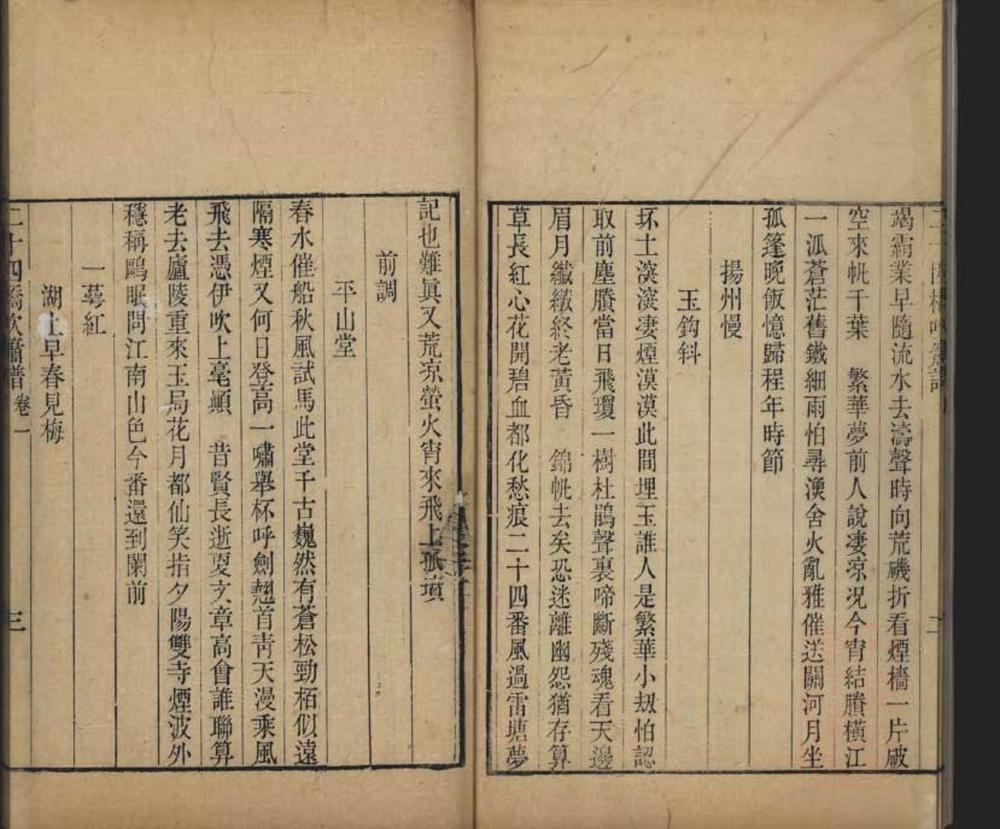 竭霸業早隨流水去濤聲時向荒磯折看煙檣一片破
空來帆千葉　繁華夢前人說凄凉况今宵結賸橫江
一派蒼茫舊鐵細雨怕尋漁舍火亂雅催送關河月坐
孤篷晚飯憶歸程年時節
揚州慢
玉鈎斜
坏土濛濛凄煙漠漠此間埋玉誰人是繁華小刼怕認
取前塵賸當日飛瓊一樹杜鵑聲裏啼斷殘魂看天邊
眉月纖纖終老黃昏　錦帆去矣恐迷離幽怨猶存算
草長紅心花開碧血都化愁痕二十四番風過雷塘夢
記也難眞又荒凉螢火宵來飛上孤墳
前調
平山堂
春水催船秋風試馬此堂千古巍然有蒼松勁栢似遠
隔寒煙又何日登高一嘯舉杯呼劍翹首靑天漫乘風
飛去憑伊吹上毫顚　昔賢長逝夏文章高會誰聯算
老去廬陵重來玉局花月都仙笑指夕陽雙寺煙波外
穩稱鷗眠問江南山色今番還到闌前
一萼紅
湖上早春見梅
二十四橋吹簫譜 卷一
三